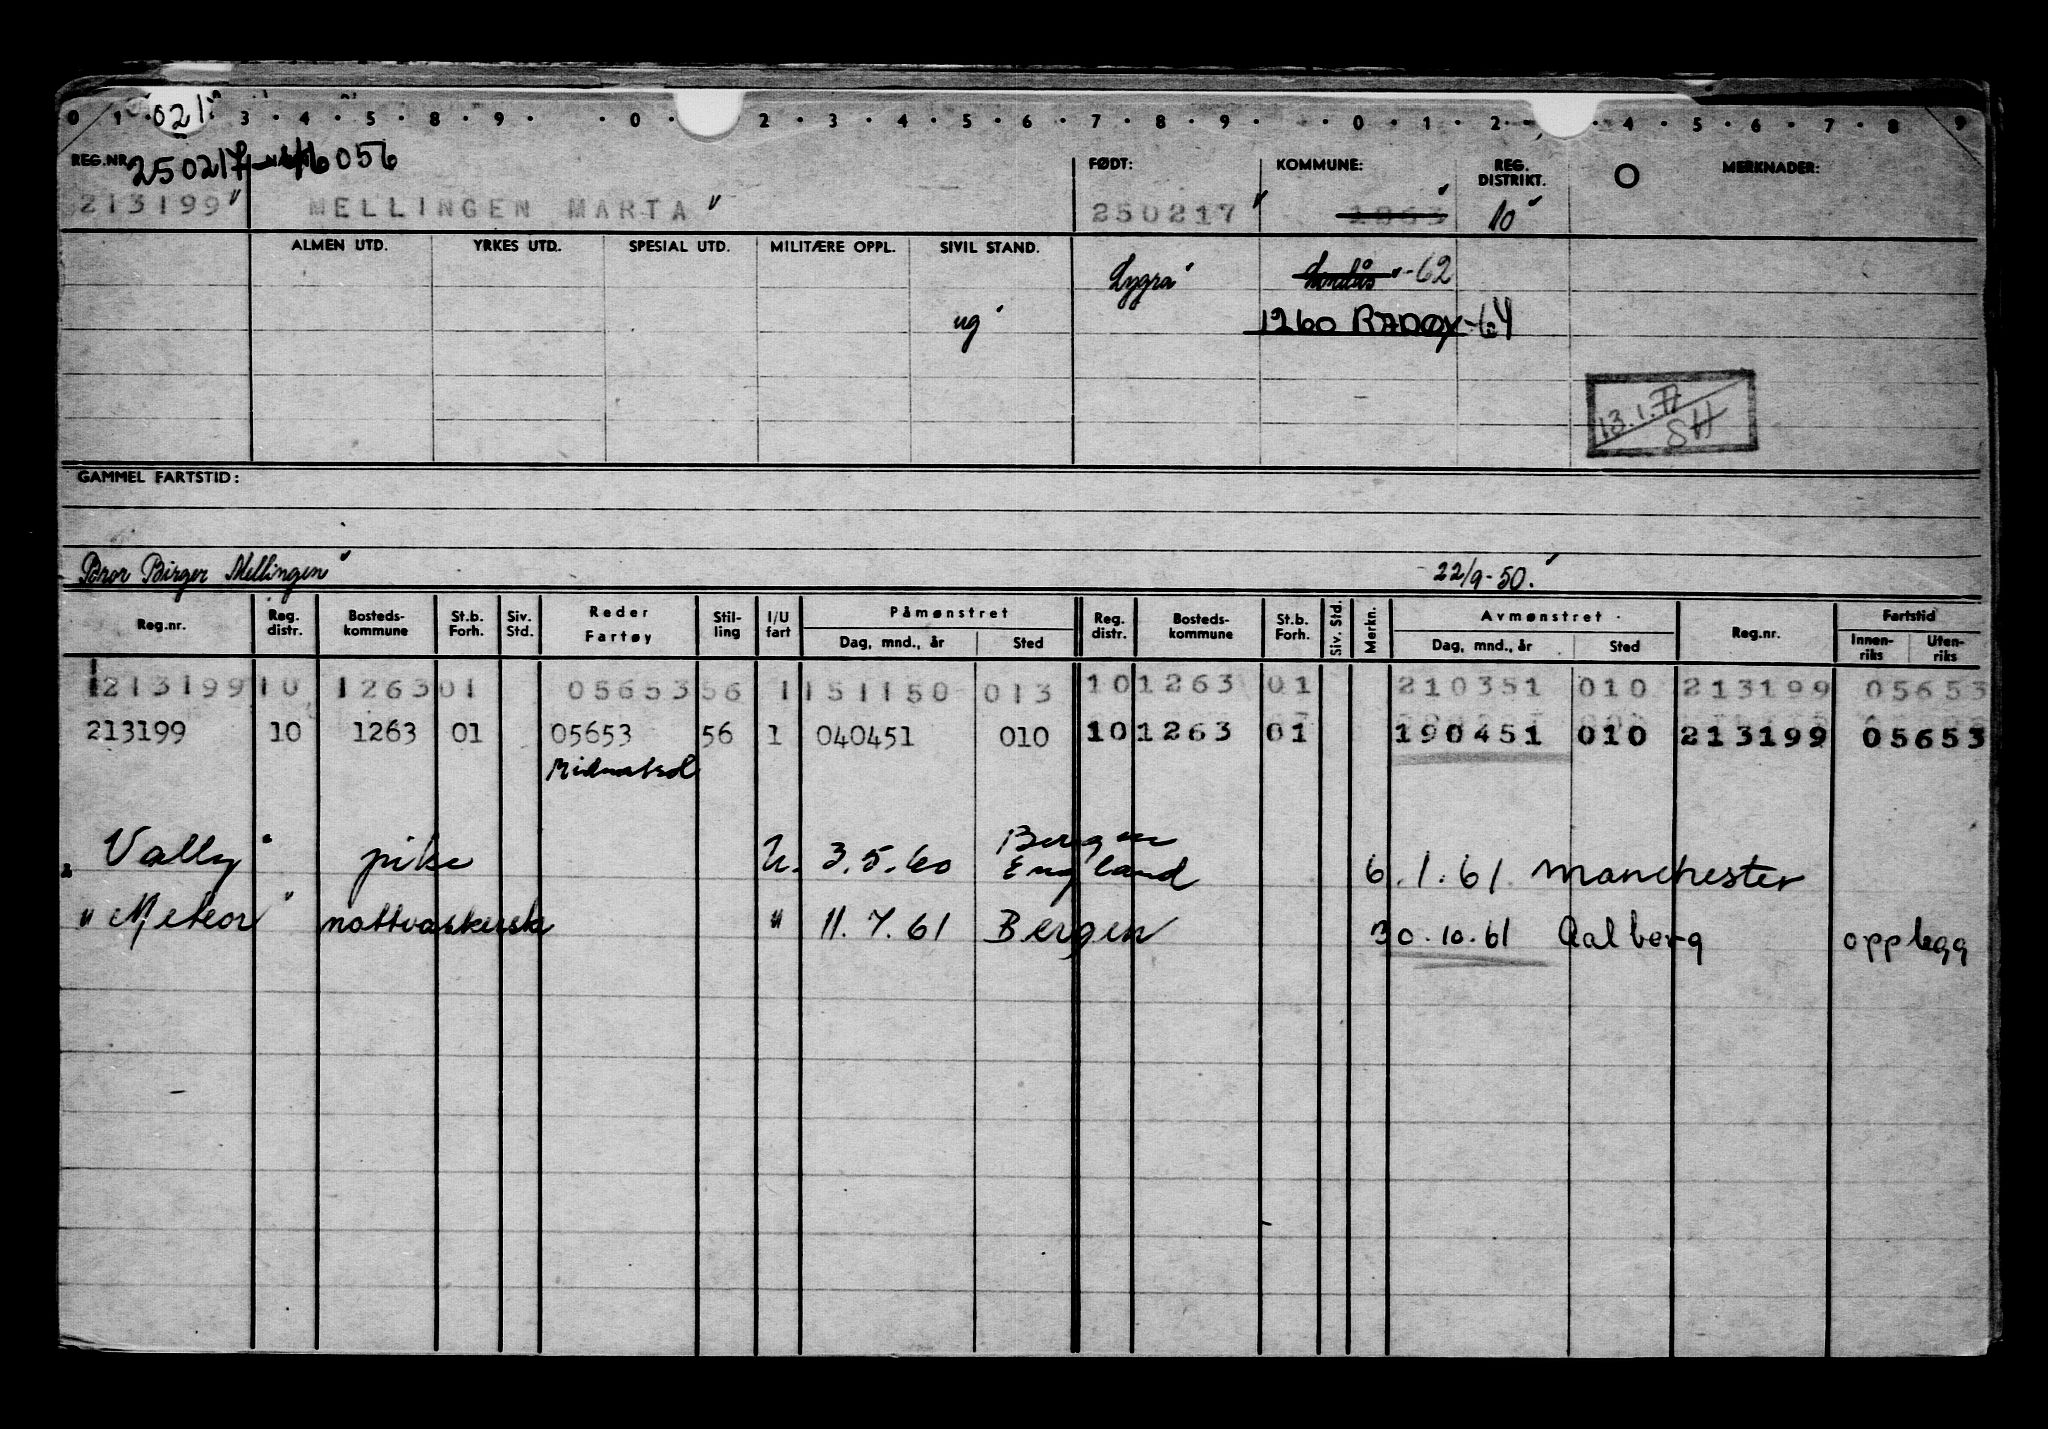 0 1 021 3 4 5 8 9 0 2 3 4 5 6 7 8 9 0 1 2 4 5 6 7 8 9
REG.NR. 250217-46056 FØDT: KOMMUNE: REG. DISTRIKT. O MERKNADER:
213199 MELLINGEN MARTA 250217 1263 10
ALMEN UTD. YRKES UTD. SPESIAL UTD. MILITÆRE OPPL. SIVIL STAND.
Lygra Lindås -62
ug 1260 RADØY-64
13.1.77
SH
GAMMEL FARTSTID:
Bror Birger Mellingen 22/9-50.
Reg.nr. Reg. distr. Bosteds-kommune St.b. Forh. Siv. Std. Reder Fartøy Stil-ling I/U fart Påmønstret Dag, mnd., år Sted Reg. distr. Bosteds-kommune St.b. Forh. Siv. Std. Merkn. Avmønstret Dag, mnd., år Sted Reg.nr. Fartstid Innen-riks Uten-riks
213199 10 1263 01 05653 56 1 151150 013 10 1263 01 210351 010 213199 05653
213199 10 1263 01 05653 56 1 040451 010 10 1263 01 190451 010 213199 05653
Midnatsol
Vally pike U. 3.5.60 Bergen England 6.1.61 Manchester
" Meteor " nattvaskersk " 11.7.61 Bergen 30.10.61 Aalborg opplegg